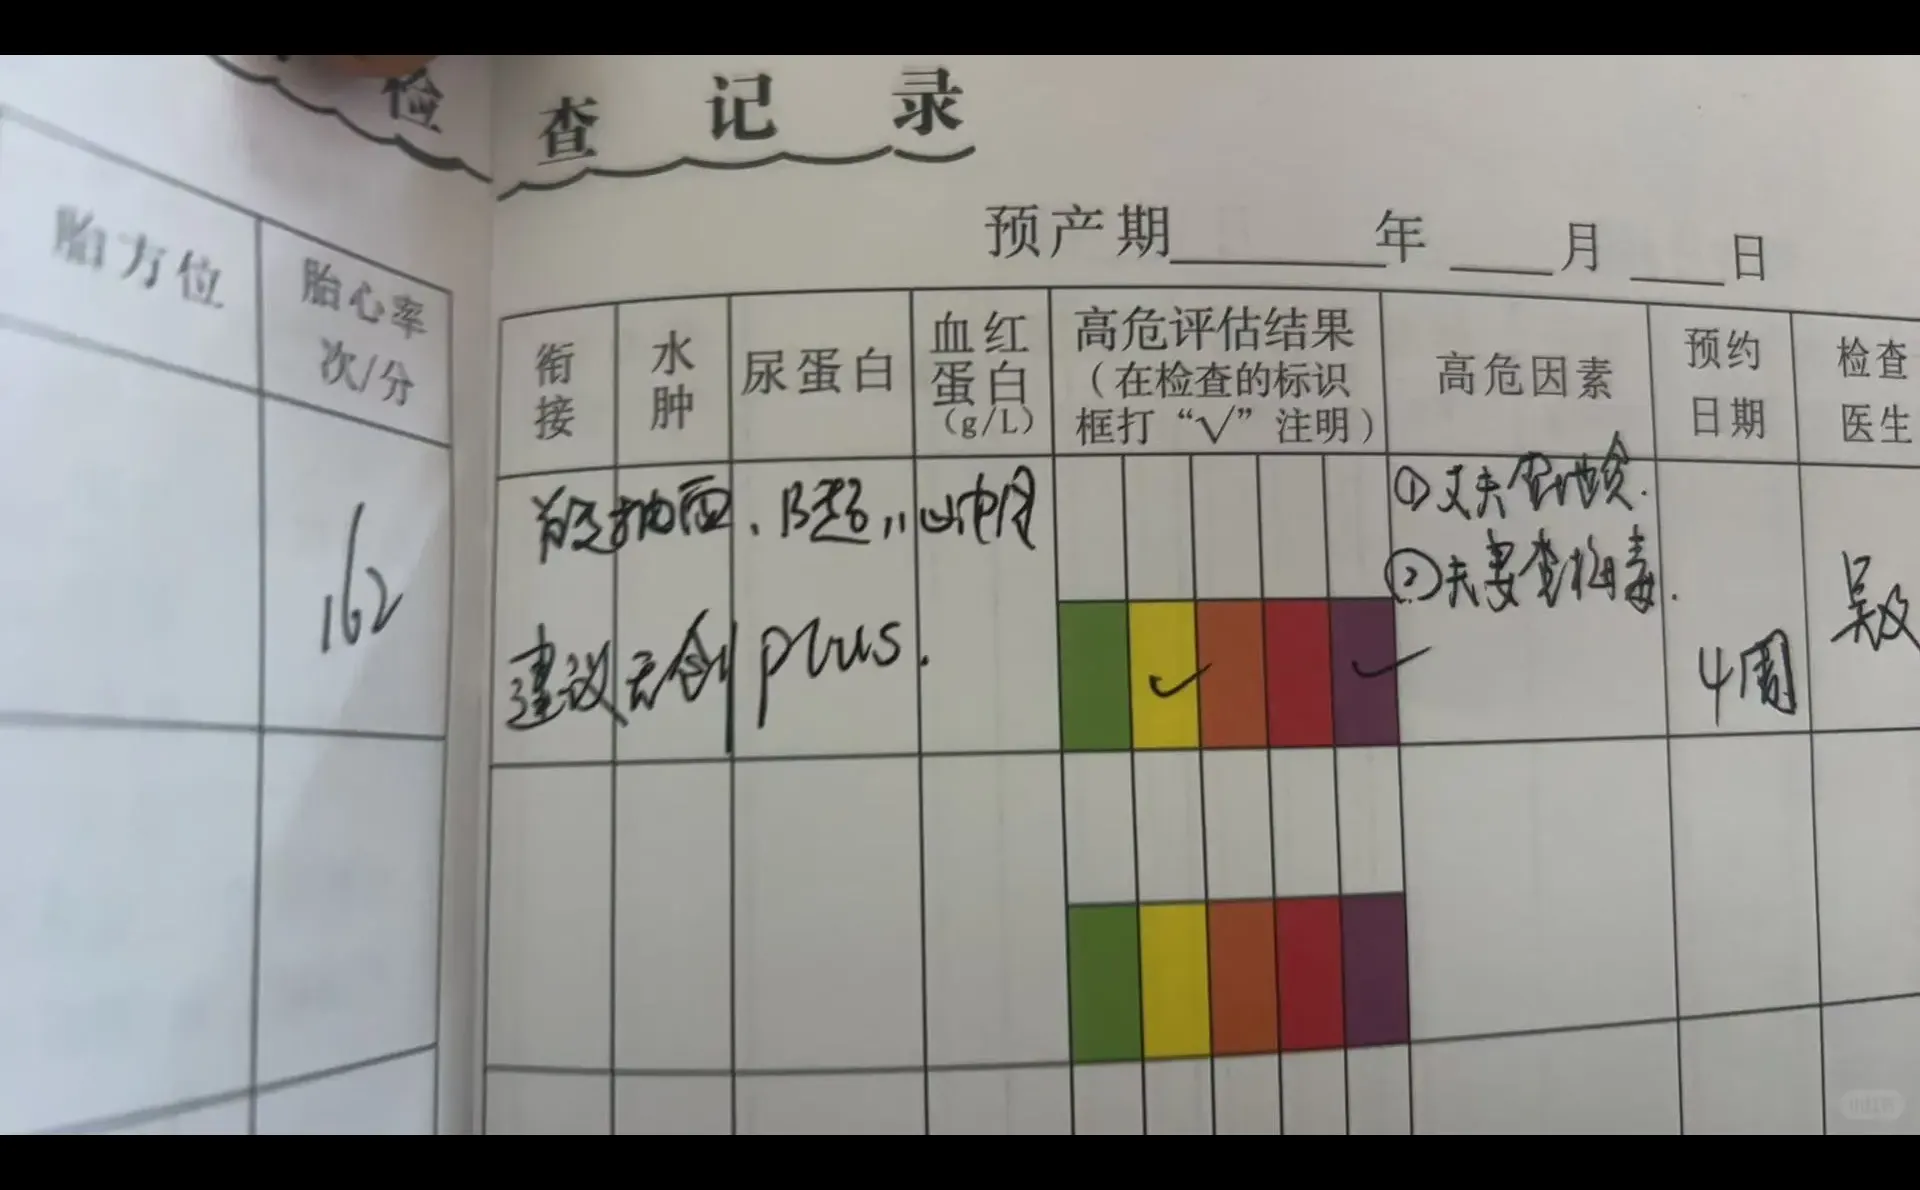 检查记录
预产期 年 月 日
胎方位
胎心率
次/分
衔接
水肿
尿蛋白
血红
蛋白
(g/L)
高危评估结果
(在检查的标识
框打“√”注明)
高危因素
预约
日期
检查
医生
162
抽血、B超
建议无创plus.
①丈夫
②夫妻查梅毒.
4周
吴